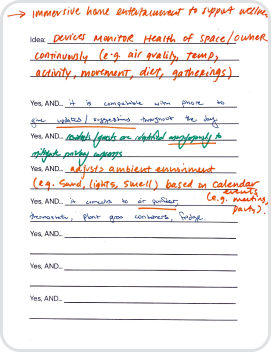 → immersive home entertainment to support wellness
Idea: Devices monitor health of space/owner
continuously (e.g. air quality, temp,
activity, movement, diet, gatherings)
Yes, AND... it is compatible with phone to
give updates/suggestions throughout the day
Yes, AND... guests are identified anonymously to
mitigate privacy concerns
Yes, AND... adjusts ambient environment
(e.g. sound, lights, smell) based on calendar
events
(e.g. meeting,
party).
Yes, AND... it connects to air purifier,
thermostats, plant grow containers, fridge.
Yes, AND...
Yes, AND...
Yes, AND...